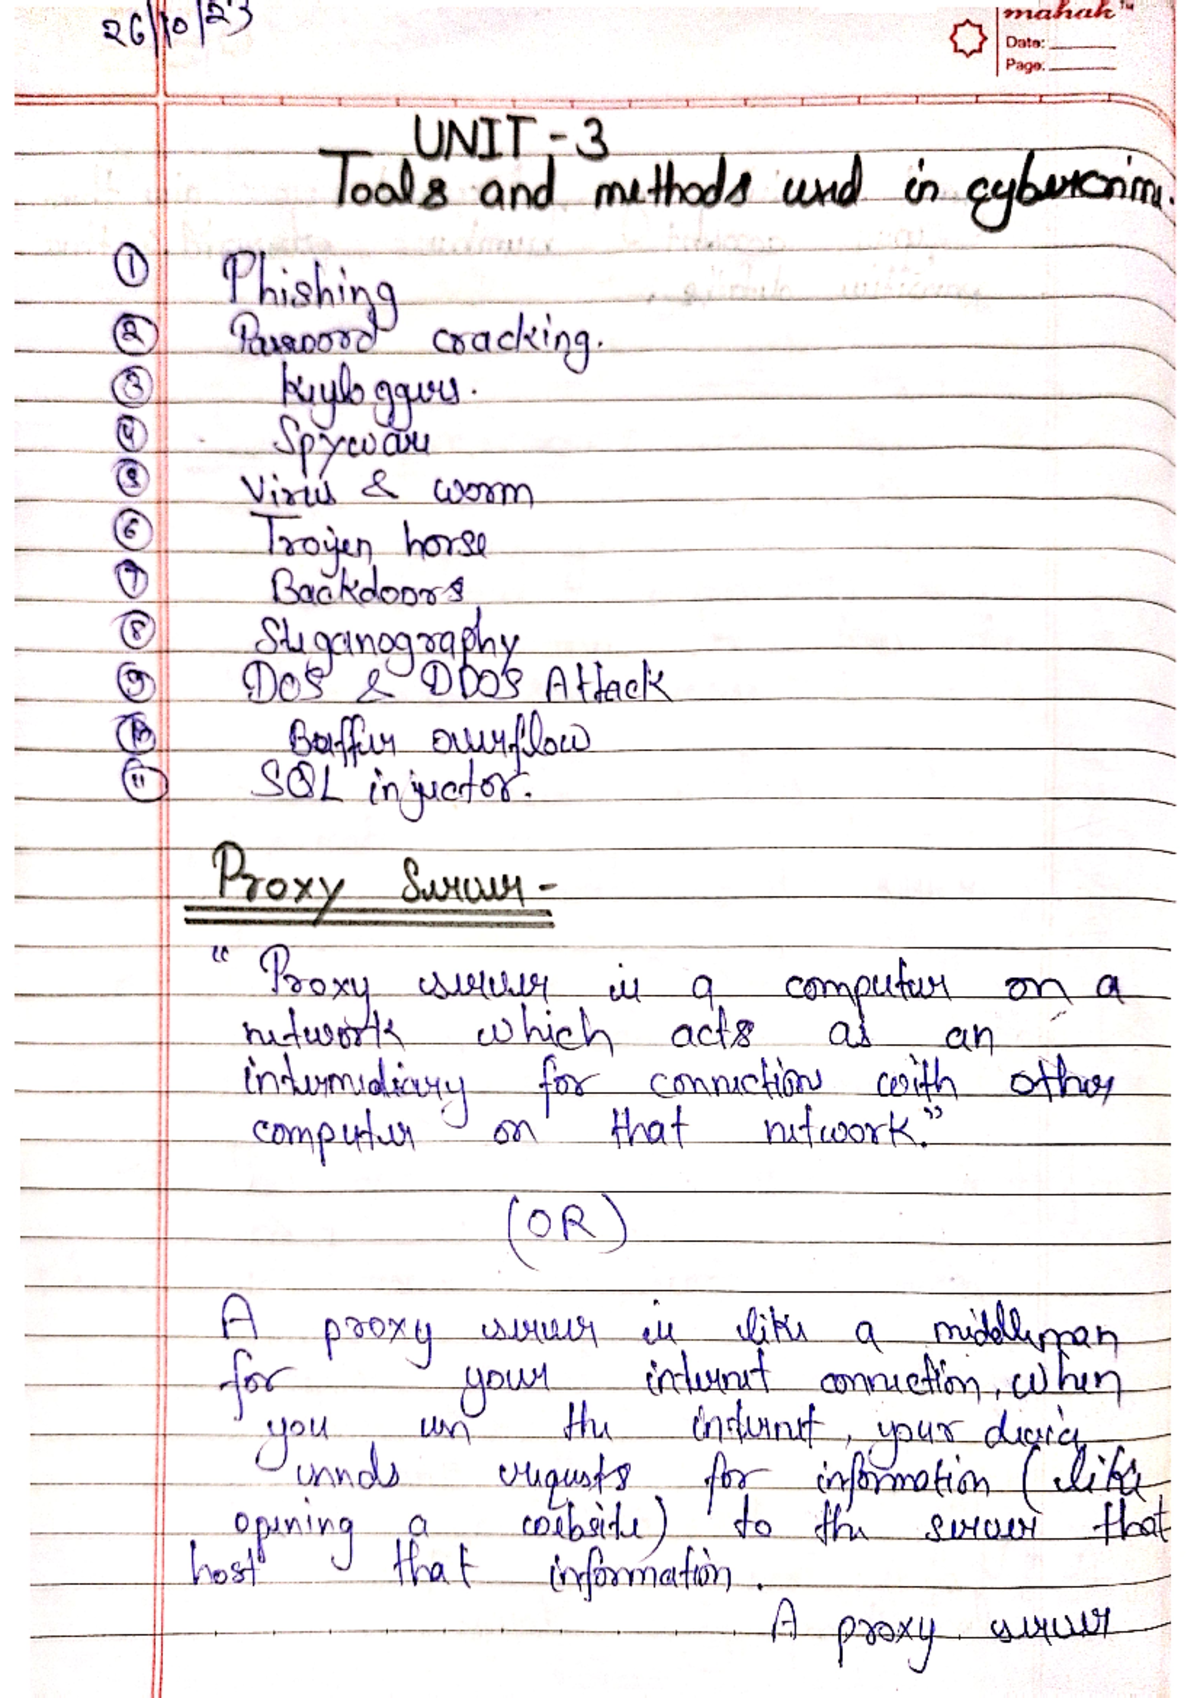 26/10/23
mahak™
Date:
Page:
UNIT-3
Tools and methods used in cybercrime.
1 Phishing
2 Password cracking.
3 Keyloggers.
4 Spyware
5 Virus & worm
6 Trojen horse
7 Backdoors
8 Steganography
9 DOS & DDOS Attack
10 Buffer overflow
11 SQL injector.
Proxy Server-
“ Proxy server is a computer on a
network which acts as an
intermediary for connection with other
computer on that network.”
(OR)
A proxy server is like a middleman
for your internet connection, when
you use the internet, your device
sends requests for information (like
opening a website) to the server that
host that information.
A proxy server